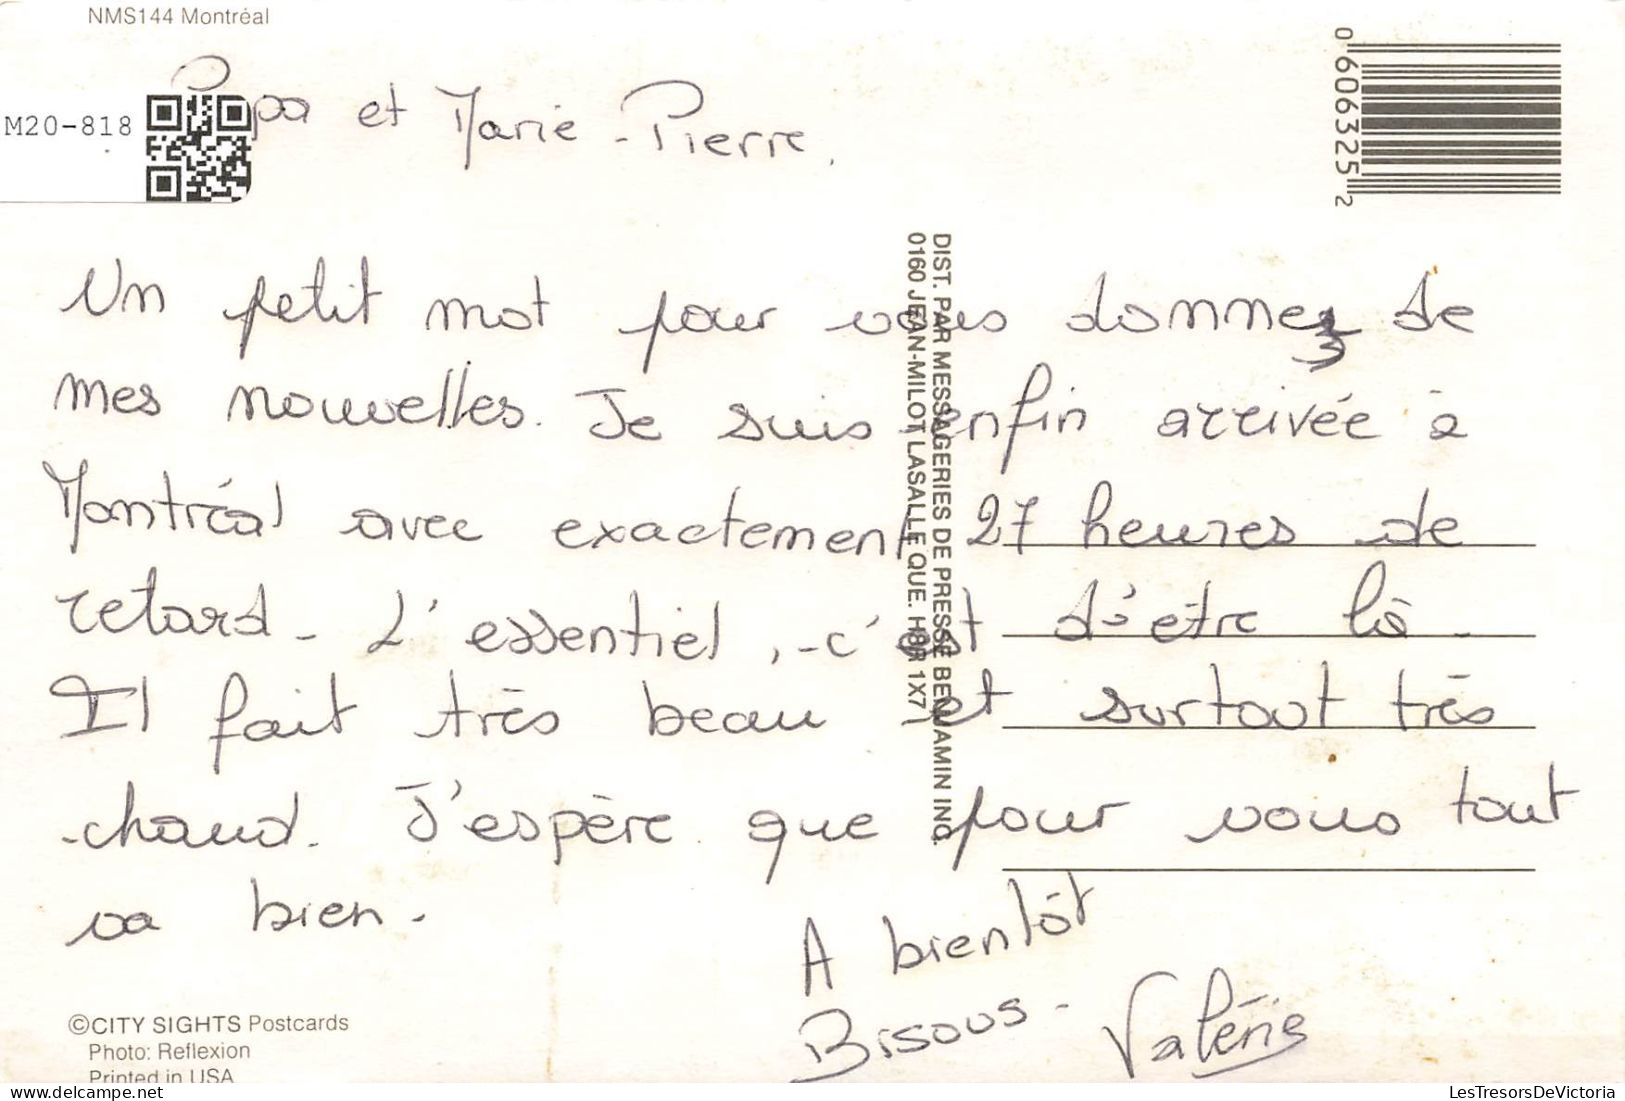 NMS144 Montréal
0 6063252 2
M20-818
Papa et Marie-Pierre,
Un petit mot pour vous donner de
mes nouvelles. Je suis enfin arrivée à
Montréal avec exactement 27 heures de
retard - L'essentiel, -c'est d'être là -
Il fait très beau et surtout très
chaud. J'espère que pour vous tout
va bien -
DIST. PAR MESSAGERIES DE PRESSE BENJAMIN INC.
0160 JEAN-MILOT LASALLE QUE. H8R 1X7
A bientôt
Bisous - Valérie
©CITY SIGHTS Postcards
Photo: Reflexion
Printed in USA
LesTresorsDeVictoria